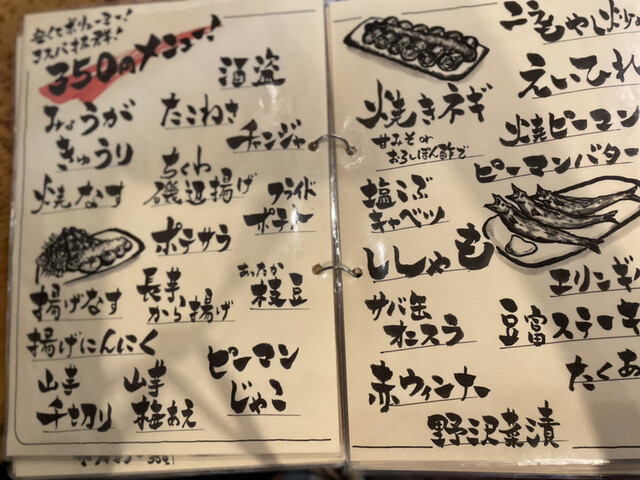 安くてボリューミー!
コスパ抜群!
350円メニュー!
酒盗
みょうが
きゅうり
たこわさ
チャンジャ
焼なす
ちくわ
磯辺揚げ
フライド
ポテト
ポテサラ
揚げなす
長芋
から揚げ
あったか
枝豆
揚げにんにく
山芋
千切り
山芋
梅あえ
ピーマン
じゃこ
ニラもやし炒め
えいひれ
焼きネギ
甘みそor
おろしぽん酢で
焼ピーマン
ピーマンバター
塩こぶ
キャベツ
ししゃも
エリンギ
サバ缶
オニスラ
豆富ステーキ
赤ウィンナー
たくあ
野沢菜漬